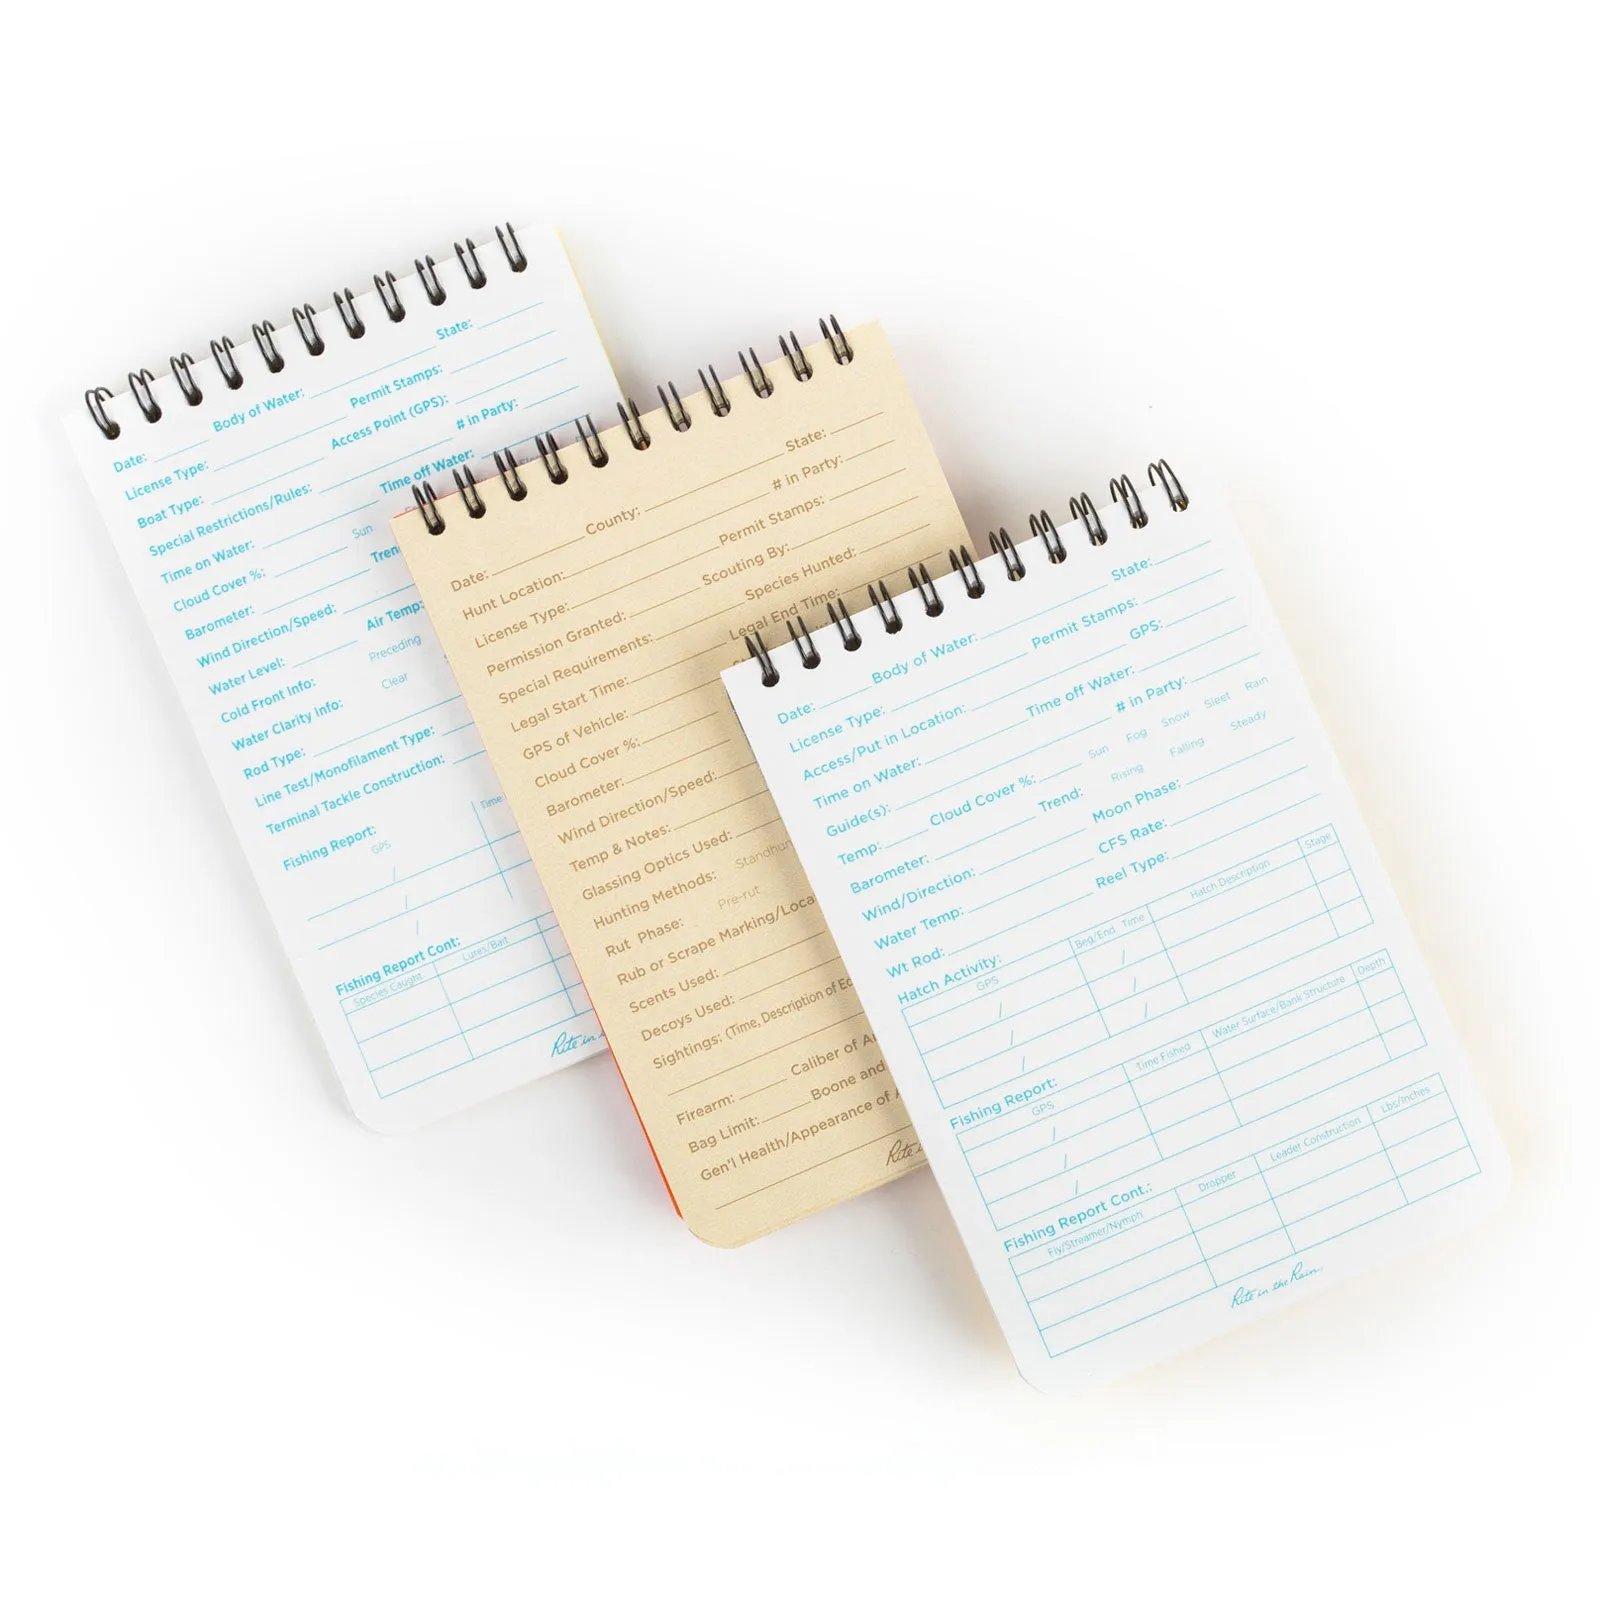 Date: Body of Water: State:
License Type: Permit Stamps:
Boat Type: Access Point (GPS):
Special Restrictions/Rules: # in Party:
Time on Water: Time off Water:
Cloud Cover %: Sun
Barometer:
Wind Direction/Speed: Air Temp:
Water Level: Preceding
Cold Front Info: Clear
Water Clarity Info:
Rod Type:
Line Test/Monofilament Type:
Terminal Tackle Construction:
Fishing Report: Time
GPS
/
/
/
Fishing Report Cont:
Species Caught Lures/Bait
Rite in
Date: County: State:
Hunt Location: # in Party:
License Type: Permit Stamps:
Permission Granted: Scouting By:
Special Requirements: Species Hunted:
Legal Start Time: Legal End Time:
GPS of Vehicle:
Cloud Cover %:
Barometer:
Wind Direction/Speed:
Temp & Notes:
Glassing Optics Used:
Hunting Methods:
Rut Phase: Pre-rut
Rub or Scrape Marking/
Scents Used:
Decoys Used:
Sightings: (Time, Description of
Firearm: Caliber of
Bag Limit: Boone and
Gen'l Health/Appearance of
Rite
Date: Body of Water: State:
License Type: Permit Stamps:
Access/Put in Location: GPS:
Time on Water: Time off Water:
Guide(s): # in Party:
Temp: Cloud Cover %: Sun Fog Snow Sleet Rain
Barometer: Trend: Rising Falling Steady
Wind/Direction: Moon Phase:
Water Temp: CFS Rate:
Wt Rod: Reel Type:
Hatch Activity:
GPS Beg/End Time Hatch Description Stage
/ /
/ /
/ /
Fishing Report:
GPS Time Fished Water Surface/Bank Structure Depth
/
/
/
Fishing Report Cont.:
Fly/Streamer/Nymph Dropper Leader Construction Lbs/Inches
Rite in the Rain